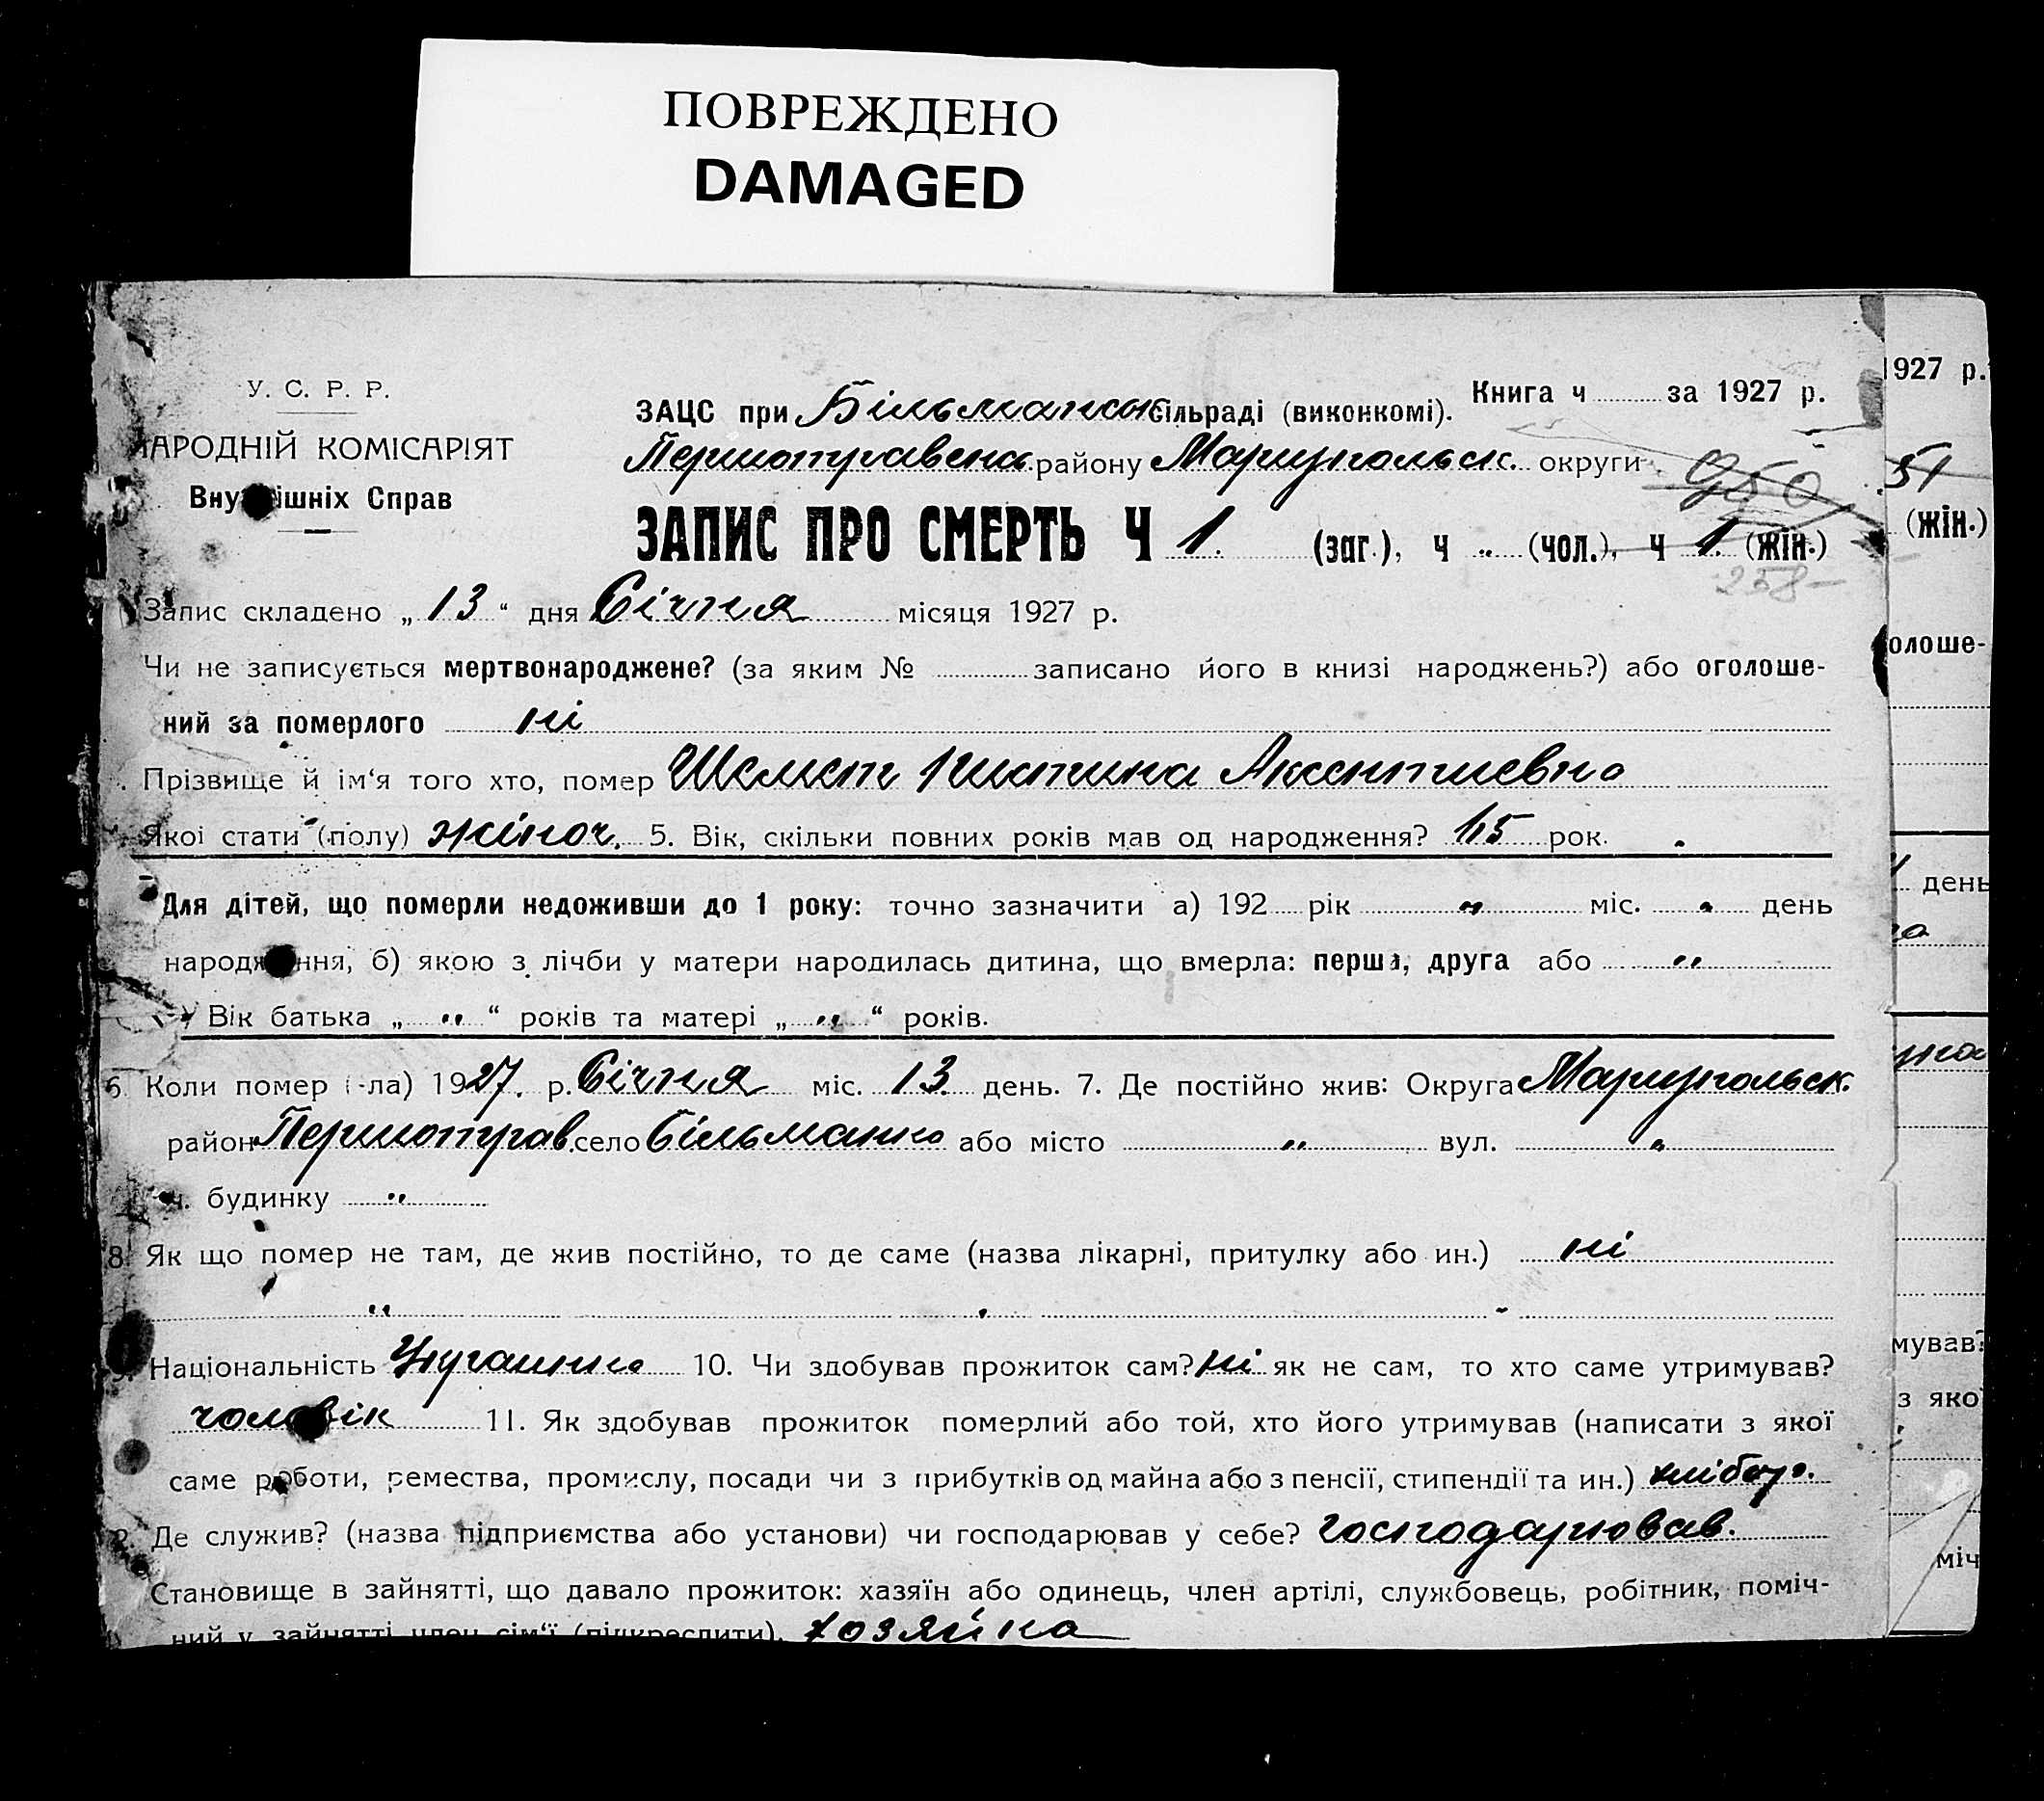 ПОВРЕЖДЕНО
DAMAGED
У. С. Р. Р.
НАРОДНІЙ КОМІСАРІЯТ
Внутрішніх Справ
ЗАЦС при Більманськ сільраді (виконкомі).
Книга ч за 1927 р.
Першотравенс. району Мариупольськ. округи
950
ЗАПИС ПРО СМЕРТЬ Ч 1. (заг.), ч " (чол.), ч 1. (жін.)
258
Запис складено „ 13 “ дня Січня місяця 1927 р.
Чи не записується мертвонароджене? (за яким № записано його в книзі народжень?) або оголоше-
ний за померлого ні
Прізвище й ім‘я того хто, помер Шелест Акентиевна
Якої стати (полу) жіноч. 5. Вік, скільки повних років мав од народження? рок.
Для дітей, що померли недоживши до 1 року: точно зазначити а) 192 рік " міс. " день
народження, б) якою з лічби у матери народилась дитина, що вмерла: перша, друга або "
Вік батька „ " “ років та матері „ " “ років.
6. Коли помер (-ла) 1927. р. Січня міс. 13 день. 7. Де постійно жив: Округа Мариупольськ.
район Першотрав. село Більманка або місто " вул. "
ч. будинку "
8. Як що помер не там, де жив постійно, то де саме (назва лікарні, притулку або ин.) ні
" " "
9. Національність 10. Чи здобував прожиток сам? ні як не сам, то хто саме утримував?
чоловік 11. Як здобував прожиток померлий або той, хто його утримував (написати з якої
саме роботи, ремества, промислу, посади чи з прибутків од майна або з пенсії, стипендії та ин.) хлібор.
2. Де служив? (назва підприємства або установи) чи господарював у себе? господарював.
Становище в зайнятті, що давало прожиток: хазяїн або одинець, член артілі, службовець, робітник, поміч-
ний у зайнятті член сім‘ї (підкреслити). хозяйка
1927 р.
51
(жін.)
олоше-
день
мував?
з якої
міч